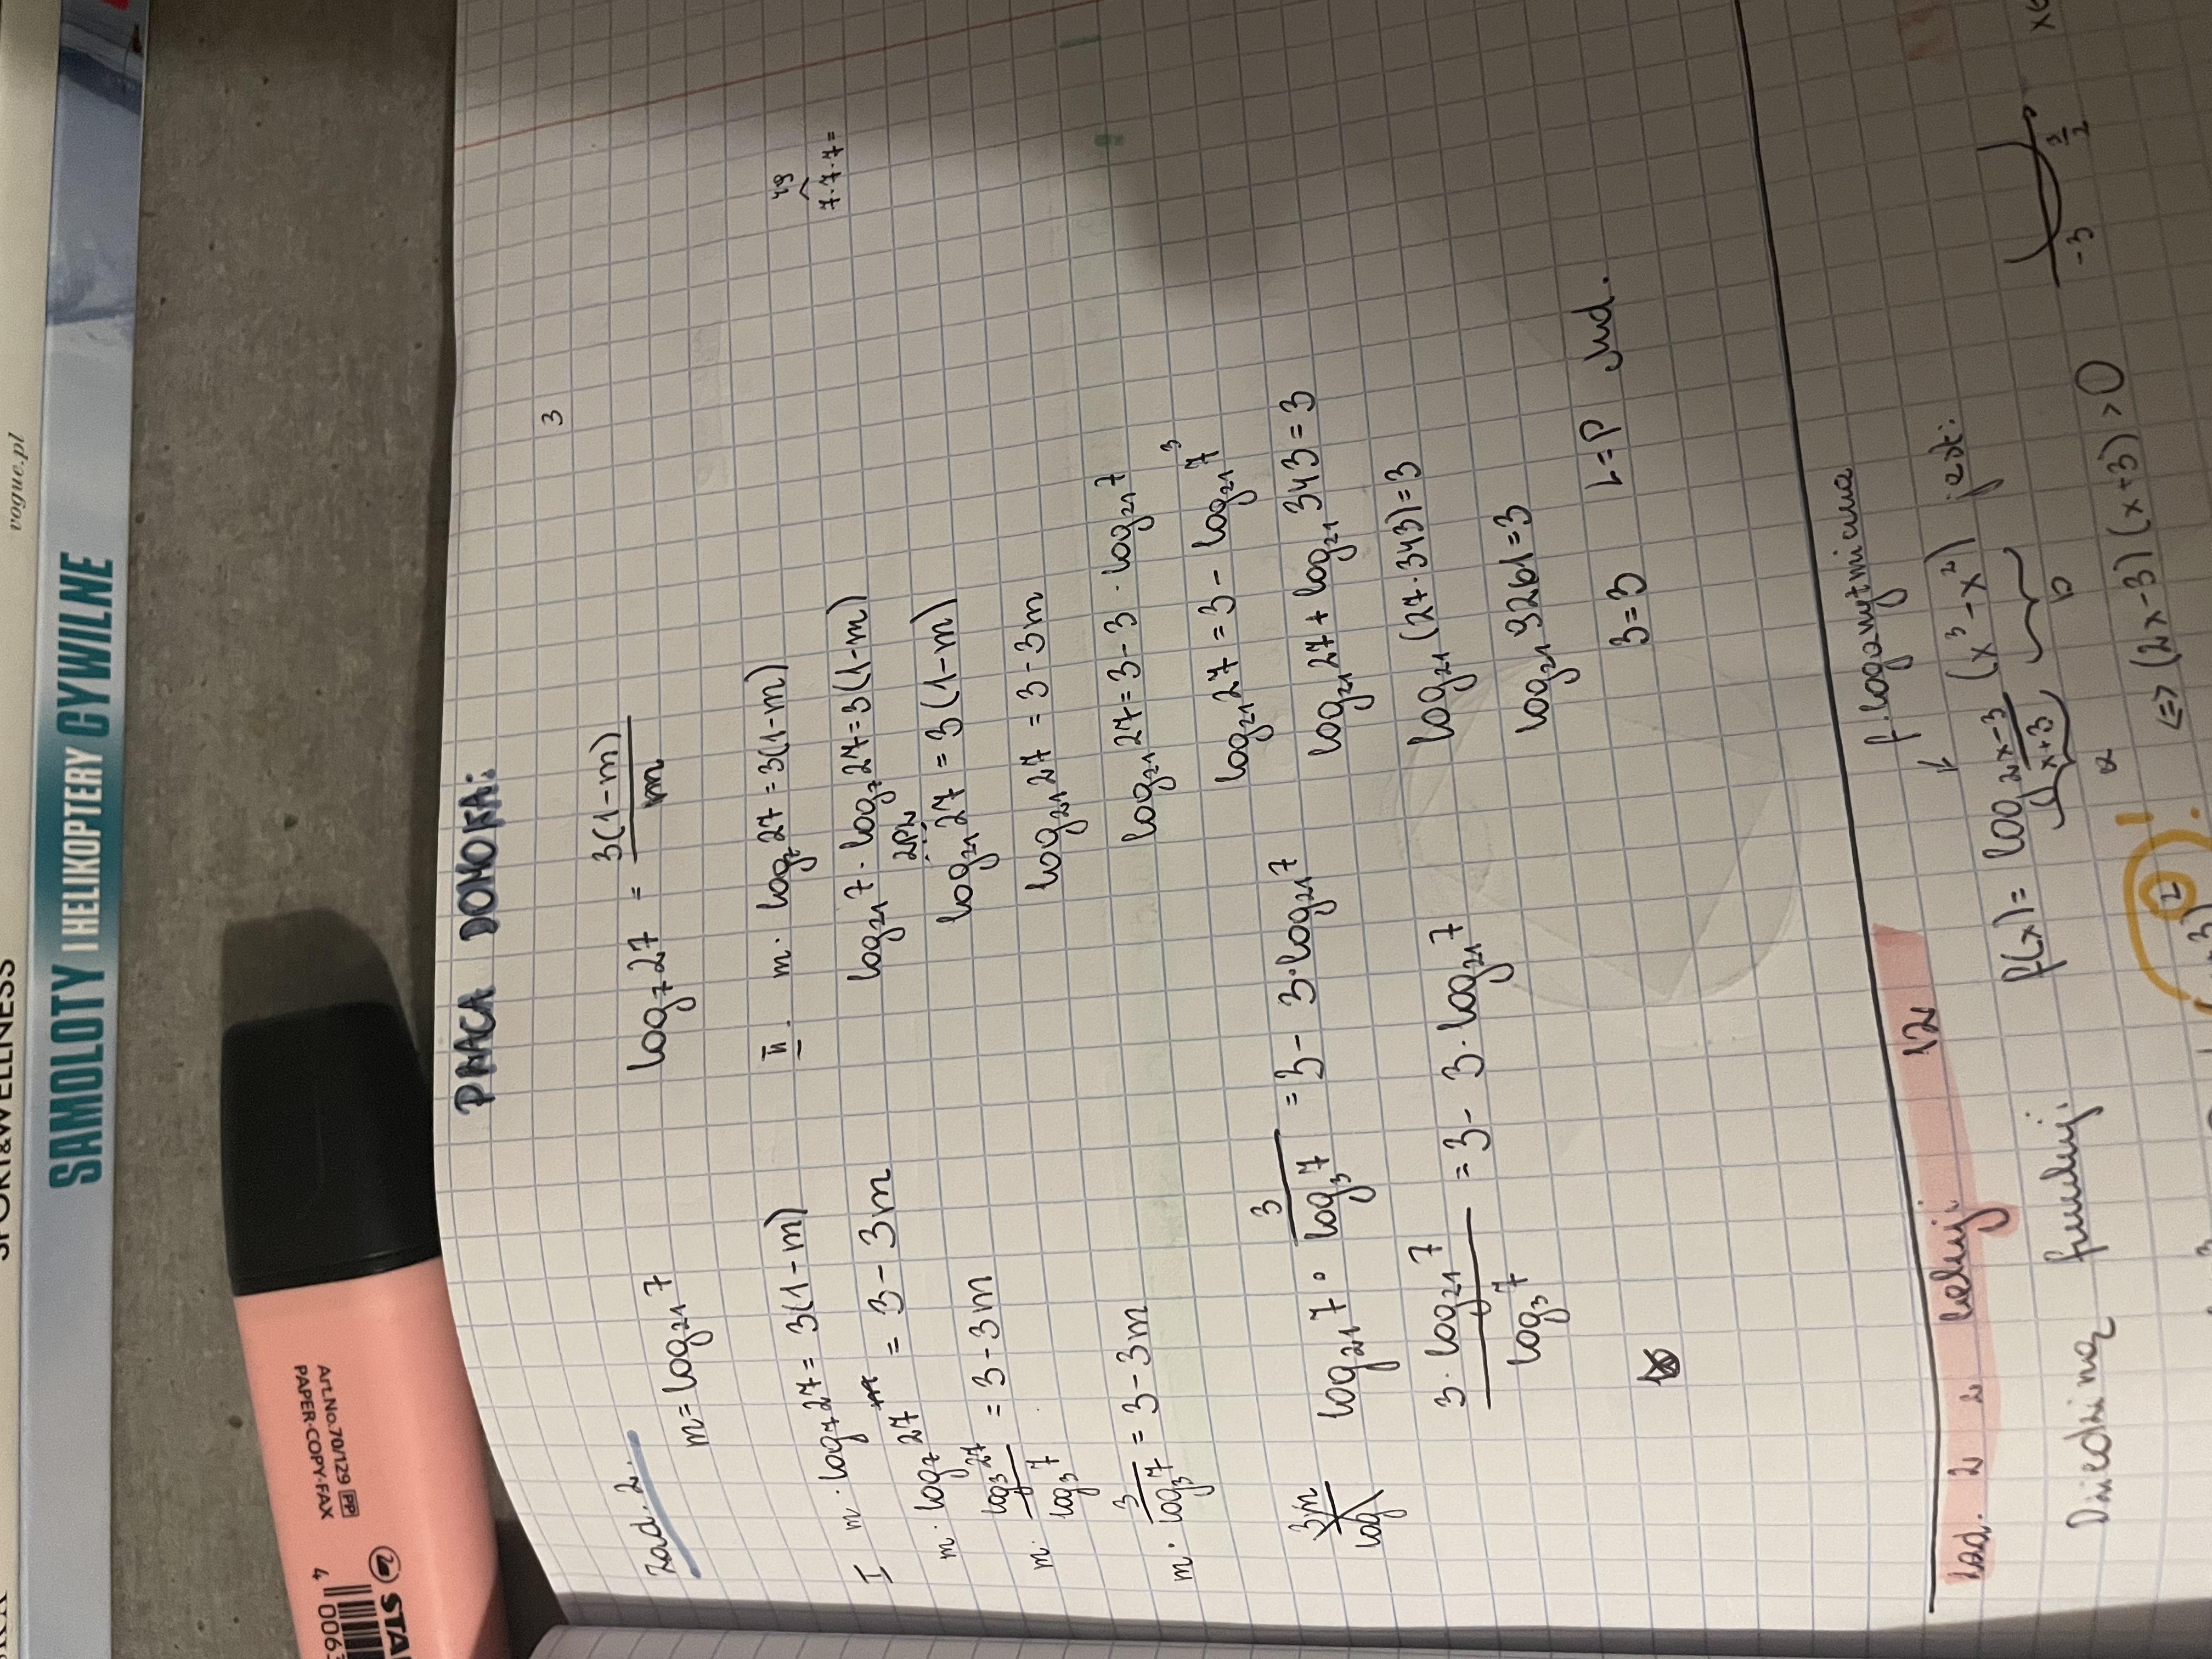 vogue.pl
SPORT&WELLNESS
SAMOLOTY I HELIKOPTERY CYWILNE
Art.No.70/129 PP
PAPER-COPY-FAX
4 0063
STA
PRACA DOMOWA:
3
Zad. 2.
m = log₂₁7
log₇27 = 3(1-m)/m
I m · log₇27 = 3(1-m)
m · log₇27 = 3-3m
m · log₃27/log₃7 = 3-3m
m · 3/log₃7 = 3-3m
3m/log
log₂₁7 · 3/log₃7 = 3-3·log₂₁7
3·log₂₁7/log₃7 = 3-3·log₂₁7
II. m · log₇27 = 3(1-m)
49
7·7·7=
log₂₁7 · log₇27 = 3(1-m)
log₂₁27 = 3(1-m)
log₂₁27 = 3-3m
log₂₁27 = 3-3·log₂₁7
log₂₁27 = 3-log₂₁7³
log₂₁27 + log₂₁343 = 3
log₂₁(27·343) = 3
log₂₁9261 = 3
3=3 L=P cnd.
zad. 2 2 lekcji 12
f. logarytmiczna
Dziedziną funkcji
f(x) = log (2x-3)/(x+3) (x³-x²) jest:
a b
⇔ (2x-3)(x+3) > 0
-3 3/2